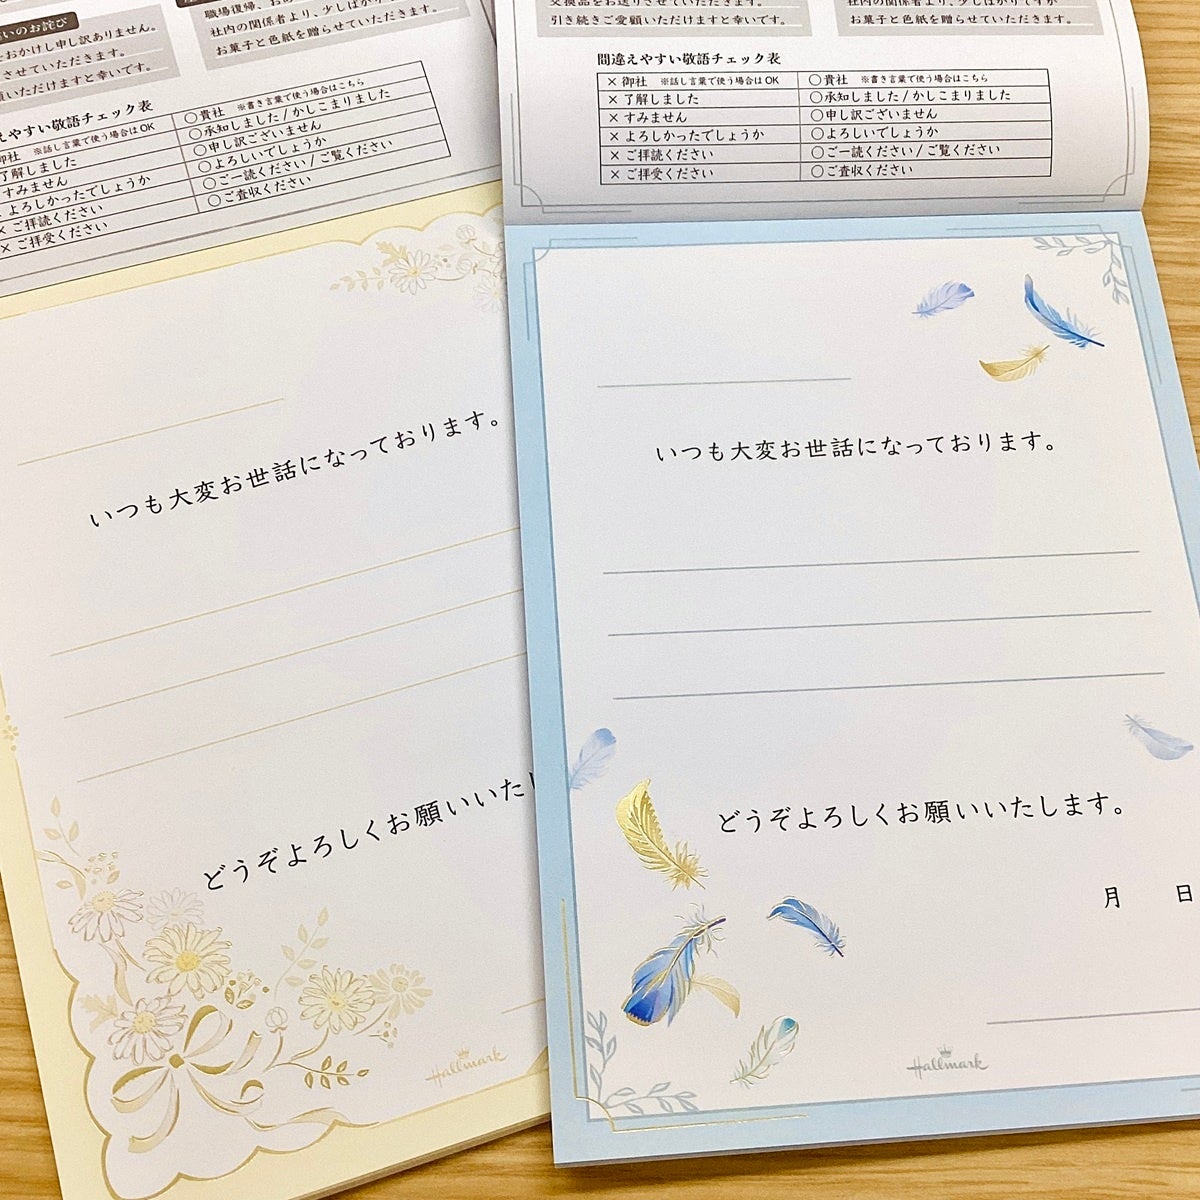 いのお詫び
をおかけし申し訳ありません。
させていただきます。
いただけますと幸いです。
職場復帰、お
社内の関係者より、少しばかり
お菓子と色紙を贈らせていただきます。
えやすい敬語チェック表
御社 ※話し言葉で使う場合はOK ○貴社 ※書き言葉で使う場合はこちら
了解しました ○承知しました/かしこまりました
すみません ○申し訳ございません
よろしかったでしょうか ○よろしいでしょうか
× ご拝読ください ○ご一読ください/ご覧ください
× ご拝受ください ○ご査収ください
いつも大変お世話になっております。
どうぞよろしくお願いいた
Hallmark
交換品をお送りさせていただきます。
引き続きご愛顧いただけますと幸いです。
社内の関係者より、少しばかりですが
お菓子と色紙を贈らせていただきます。
間違えやすい敬語チェック表
× 御社 ※話し言葉で使う場合はOK ○貴社 ※書き言葉で使う場合はこちら
× 了解しました ○承知しました/かしこまりました
× すみません ○申し訳ございません
× よろしかったでしょうか ○よろしいでしょうか
× ご拝読ください ○ご一読ください/ご覧ください
× ご拝受ください ○ご査収ください
いつも大変お世話になっております。
どうぞよろしくお願いいたします。
月 日
Hallmark